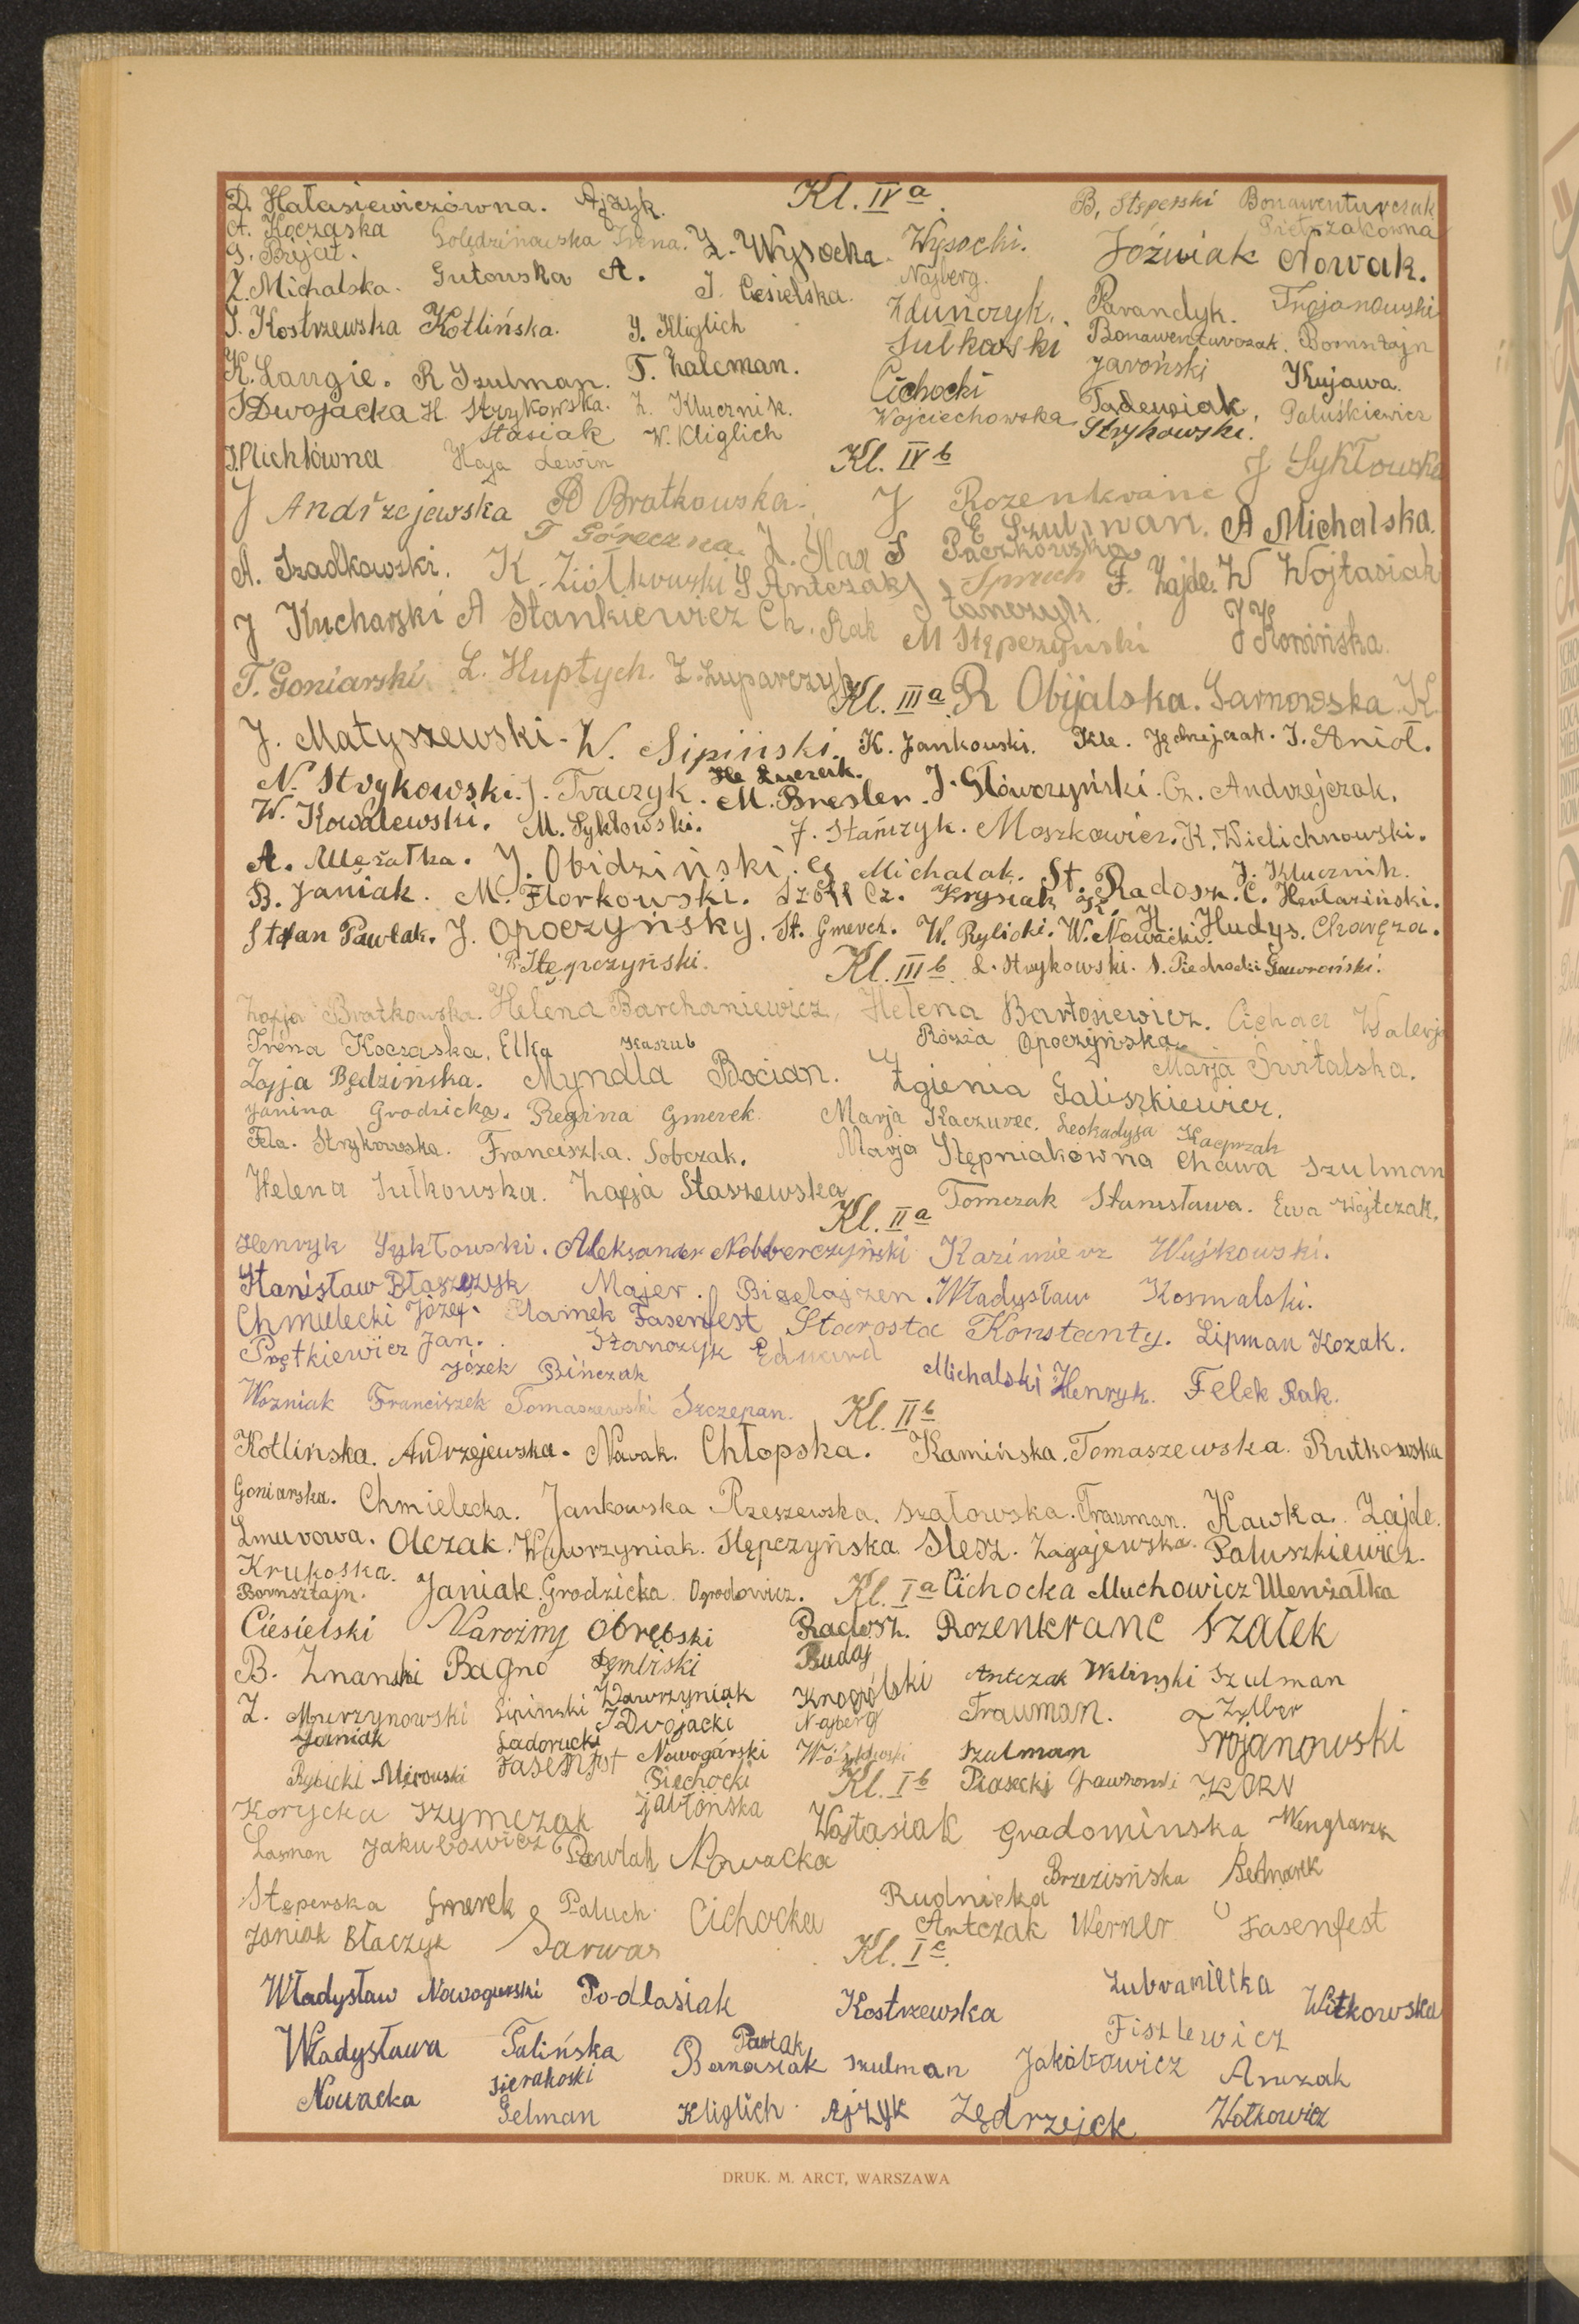 D. Hałasiewiczówna. Ajzyk. Kl. IV a. B. Steperski Bonawenturczak
A. Koczaska Golędzinowska Irena. Z. Wysocka. Wysocki. Jóźwiak Pietrzakówna
G. Bryjat. Nowak.
Z. Michalska. Gutowska A. J. Ciesielska. Najberg. Parandyk. Trojanowski
J. Kostrzewska Kotlińska. Y. Kliglich Zduńczyk. Bonawenturczak. Bornsztajn
K. Langie. R Szulman. T. Zalcman. Sulkowski Jaroński Kujawa.
S Dwojacka H. Strzykowska. Z. Klucznik. Cichocki Tadeusiak, Paluśkiewicz
Stasiak W. Kliglich Wojciechowska Strykowski.
J. Plichtówna Haja Lewin Kl. IV b J Sykłowska
J Andrzejewska A Bratkowska. J Rozenkranc
T Góreczna. Z. Hax S Paczkowska E Szulman. A Michalska.
A. Szadkowski. K. Ziółkowski S Antczak J Śpiuch F. Zajde. W Wojtasiak
J Kucharski A Stankiewicz Ch. Rak Stańczyk. M Stępczyński J Konińska.
T. Goniarski. L. Huptych. Z. Luparczyk Kl. III a R Obijalska. Sarnowska. K
J. Matyszewski. W. Sipiński. K. Jankowski. Kle. Jędrzejczak. J. Anioł.
N. Strykowski. J. Traczyk. M. Bresler. J. Główczyński. Cz. Andrzejczak.
W. Kowalewski. M. Sykłowski. J. Stańczyk. Moszkowicz. K. Wielichnowski.
A. Męrałka. J. Obidziński. Cz Michalak. St. Radosz. J. Klucznik.
B. Janiak. M. Florkowski. Szoll Cz. Krysiak C. Herlaziński.
Stefan Pawlak. J. Opoczyński. St. Gmerek. W. Rylicki. W. Nowacki. H. Hudys. Chawęza.
R. Stępczyński. Kl. III b L. Strykowski. S. Piechocki Gawroński.
Zofja Bratkowska. Helena Barchaniewicz. Helena Bartosiewicz. Cichac Walerja
Irena Koczaska. Elka Kaszub Rózia Opoczyńska.
Zofja Będzińska. Myndla Bocian. Zgienia Galiszkiewicz. Marja Świtalska.
Janina Grodzicka. Regina Gmerek. Marja Kaczurec. Leokadyja Kacprzak
Fela. Strykowska. Franciszka. Sobczak. Marja Stępniakówna Chawa Szulman
Helena Sułkowska. Zofja Staszewska Tomczak Stanisława. Ewa Wojtczak.
Kl. II a
Henryk Sykłowski. Aleksander Nobberczyński Kazimierz Wujkowski.
Stanisław Błaszczyk Majer. Bigelajzen. Władysław Kosmalski.
Chmielecki Józef. Elamek Fasenfest Starosta Konstanty. Lipman Kozak.
Prętkiewicz Jan. Stańczyk Edward
Józek Bińczak Michalski Henryk. Felek Rak.
Woźniak Franciszek Tomaszewski Szczepan. Kl. II b
Kotlińska. Andrzejewska. Nowak. Chłopska. Kamińska. Tomaszewska. Rutkowska
Goniarska. Chmielecka. Jankowska Rzeszewska. Szałowska. Frauman. Kawka. Zajde.
Zmurowa. Olczak. Wawrzyniak. Stępczyńska. Slesz. Zagajewska. Paluszkiewicz.
Krukoska.
Bornsztajn. Janiak. Grodzicka. Ogrodowicz. Kl. I a Cichocka Muchowicz Menżałka
Ciesielski Narożny Obrębski Radosz. Rozenkranc Szałek
B. Znanski Bagno Dembski Buday
Z. Murzynowski Sipiński Wawrzyniak Knopólski Antczak Waliński Szulman
Janiak Ladorucki J Dwojacki Najberg Frauman. Zylber
Rybicki Mirowski Fasenfest Nowogórski Szulman Trojanowski
Piechocki Kl. I b Piasecki Gawroński KORN
Korycka Szymczak Jabłońska Wojtasiak Gradomińska Wenglarzk
Lasman Jakubowicz Pawlak Nowacka
Brzezińska Bednarek
Stęperska Gmerek Paluch Cichocka Rudnicka
Janiak Błaczyk Sarwas Antczak Werner Fasenfest
Kl. I c.
Władysław Nowogurski Podlasiak Kostrzewska Lubraniecka Witkowska
Władysława Talińska Pawlak Fiszlewicz
Banasiak Szulman Jakóbowicz Anczak
Nowacka Sierakoski
Gelman Kliglich Ajzyk Zędrzejek Wołkowicz
DRUK. M. ARCT, WARSZAWA